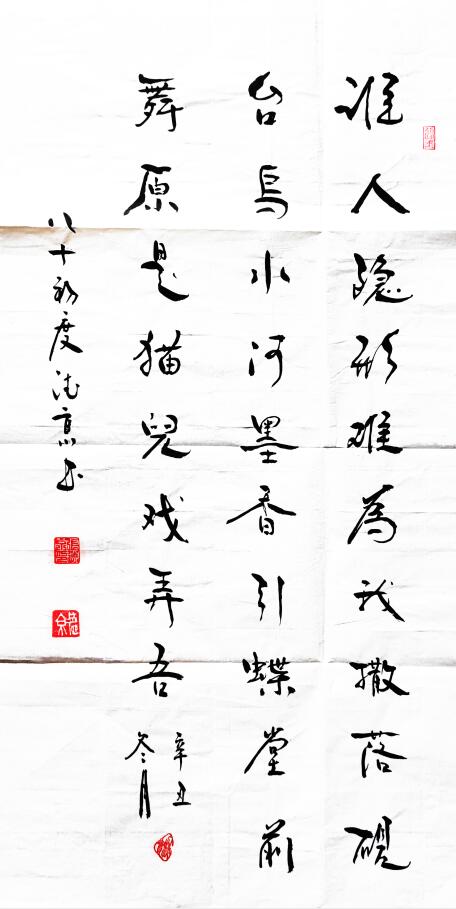 谁人隐形难為我撒落砚
台乌水河墨香引蝶堂前
舞原是猫兒戏弄吾
辛丑
冬月
八十初度京书